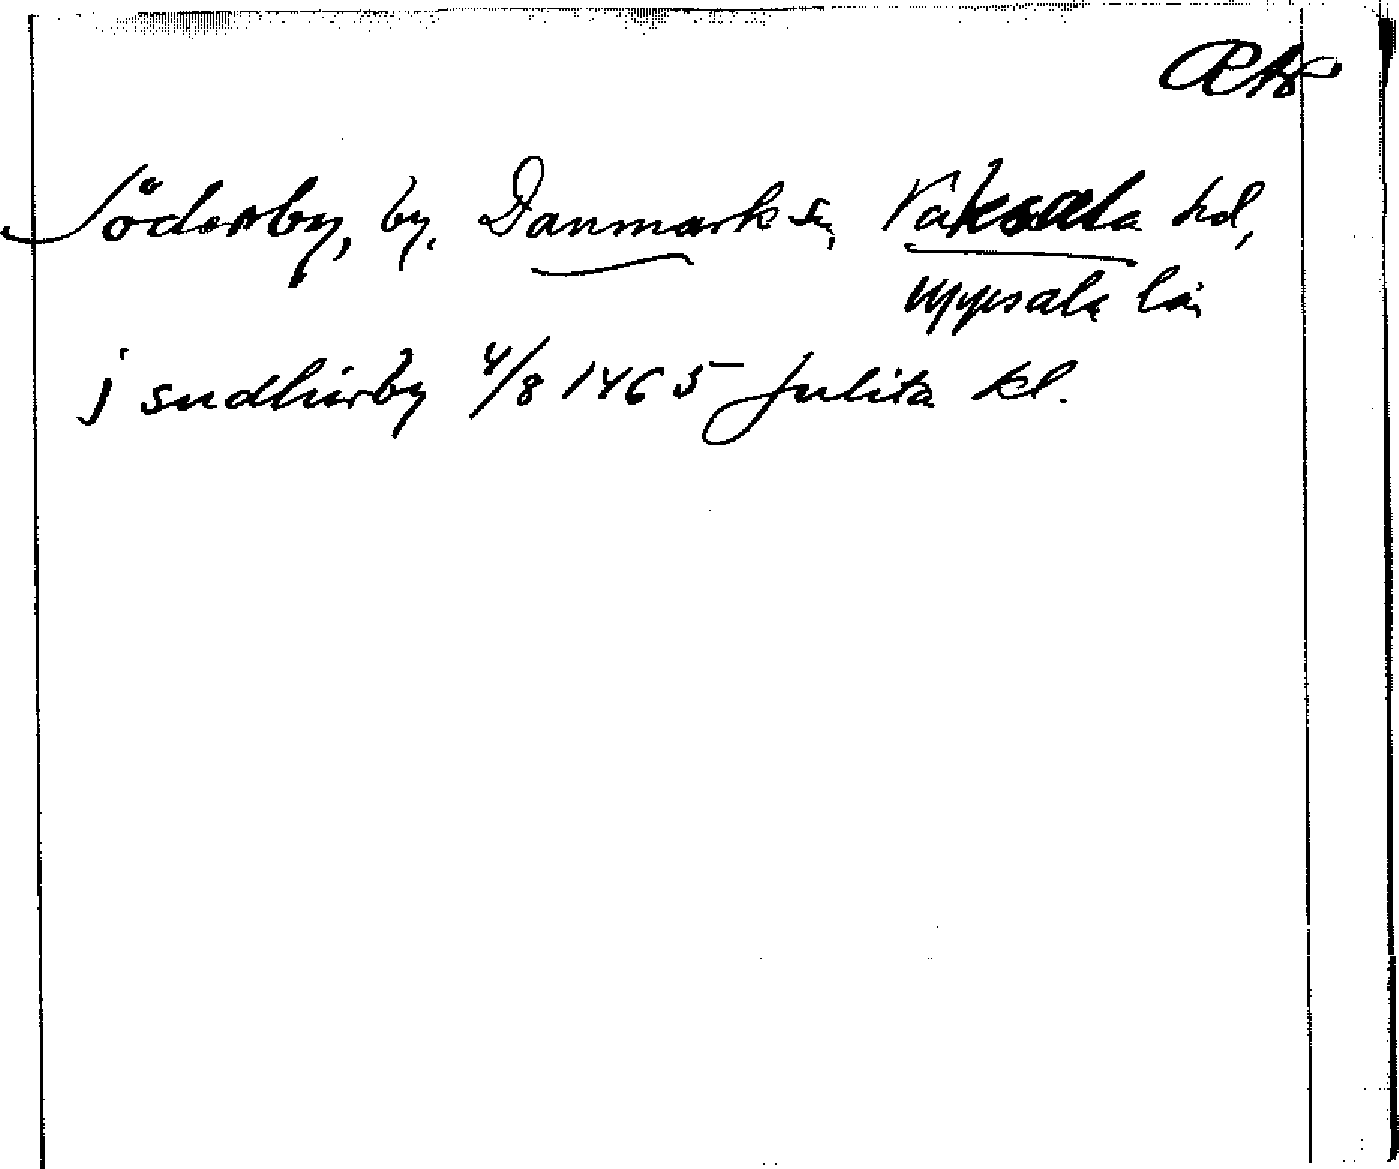 Söderby, by, Danmark sn, Vaksala hd,
Uppsala län
j sudhirby 4/8 1465 Julita kl.